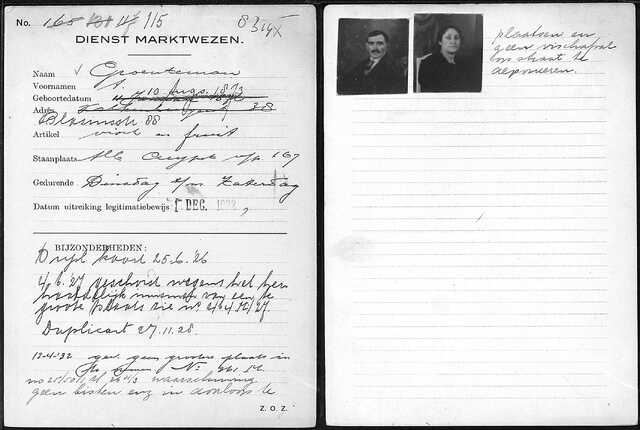 No. 165 115
DIENST MARKTWEZEN.
Naam Groenteman
Voornamen
Geboortedatum 10 Aug. 1873
Adres 38
Blasiusstr 88
Artikel visch en fruit
Staanplaats Alb Cuypstr 167
Gedurende Dinsdag t/m Zaterdag
Datum uitreiking legitimatiebewijs 1 DEG. 1922
BIJZONDERHEDEN:
Bijl kaart 25.6.26
4/6.'27 gestraft wegens het her
haaldelijk innemen van een te
groote plaats zie no.
Duplicaat 27.11.28.
12-4-'32 geen grootere plaats in
No 261
waarschuwing
geen kisten enz in
Z. O. Z.
plaatsen en
geen vischafval
op straat te
deponeeren.